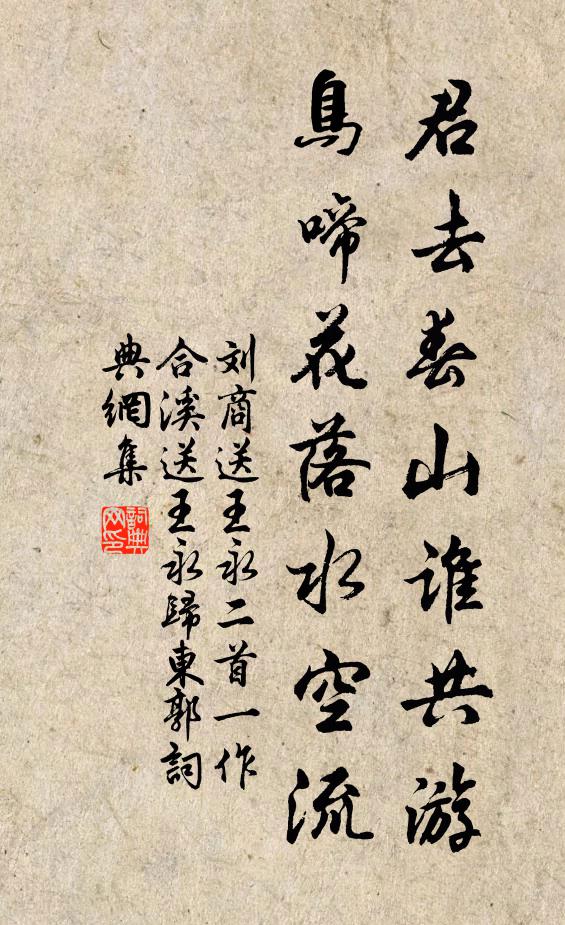 君去春山谁共游
鳥啼花落水空流
刘商送王永二首一作
合溪送王永歸東郭詞
典網集
詞典网印